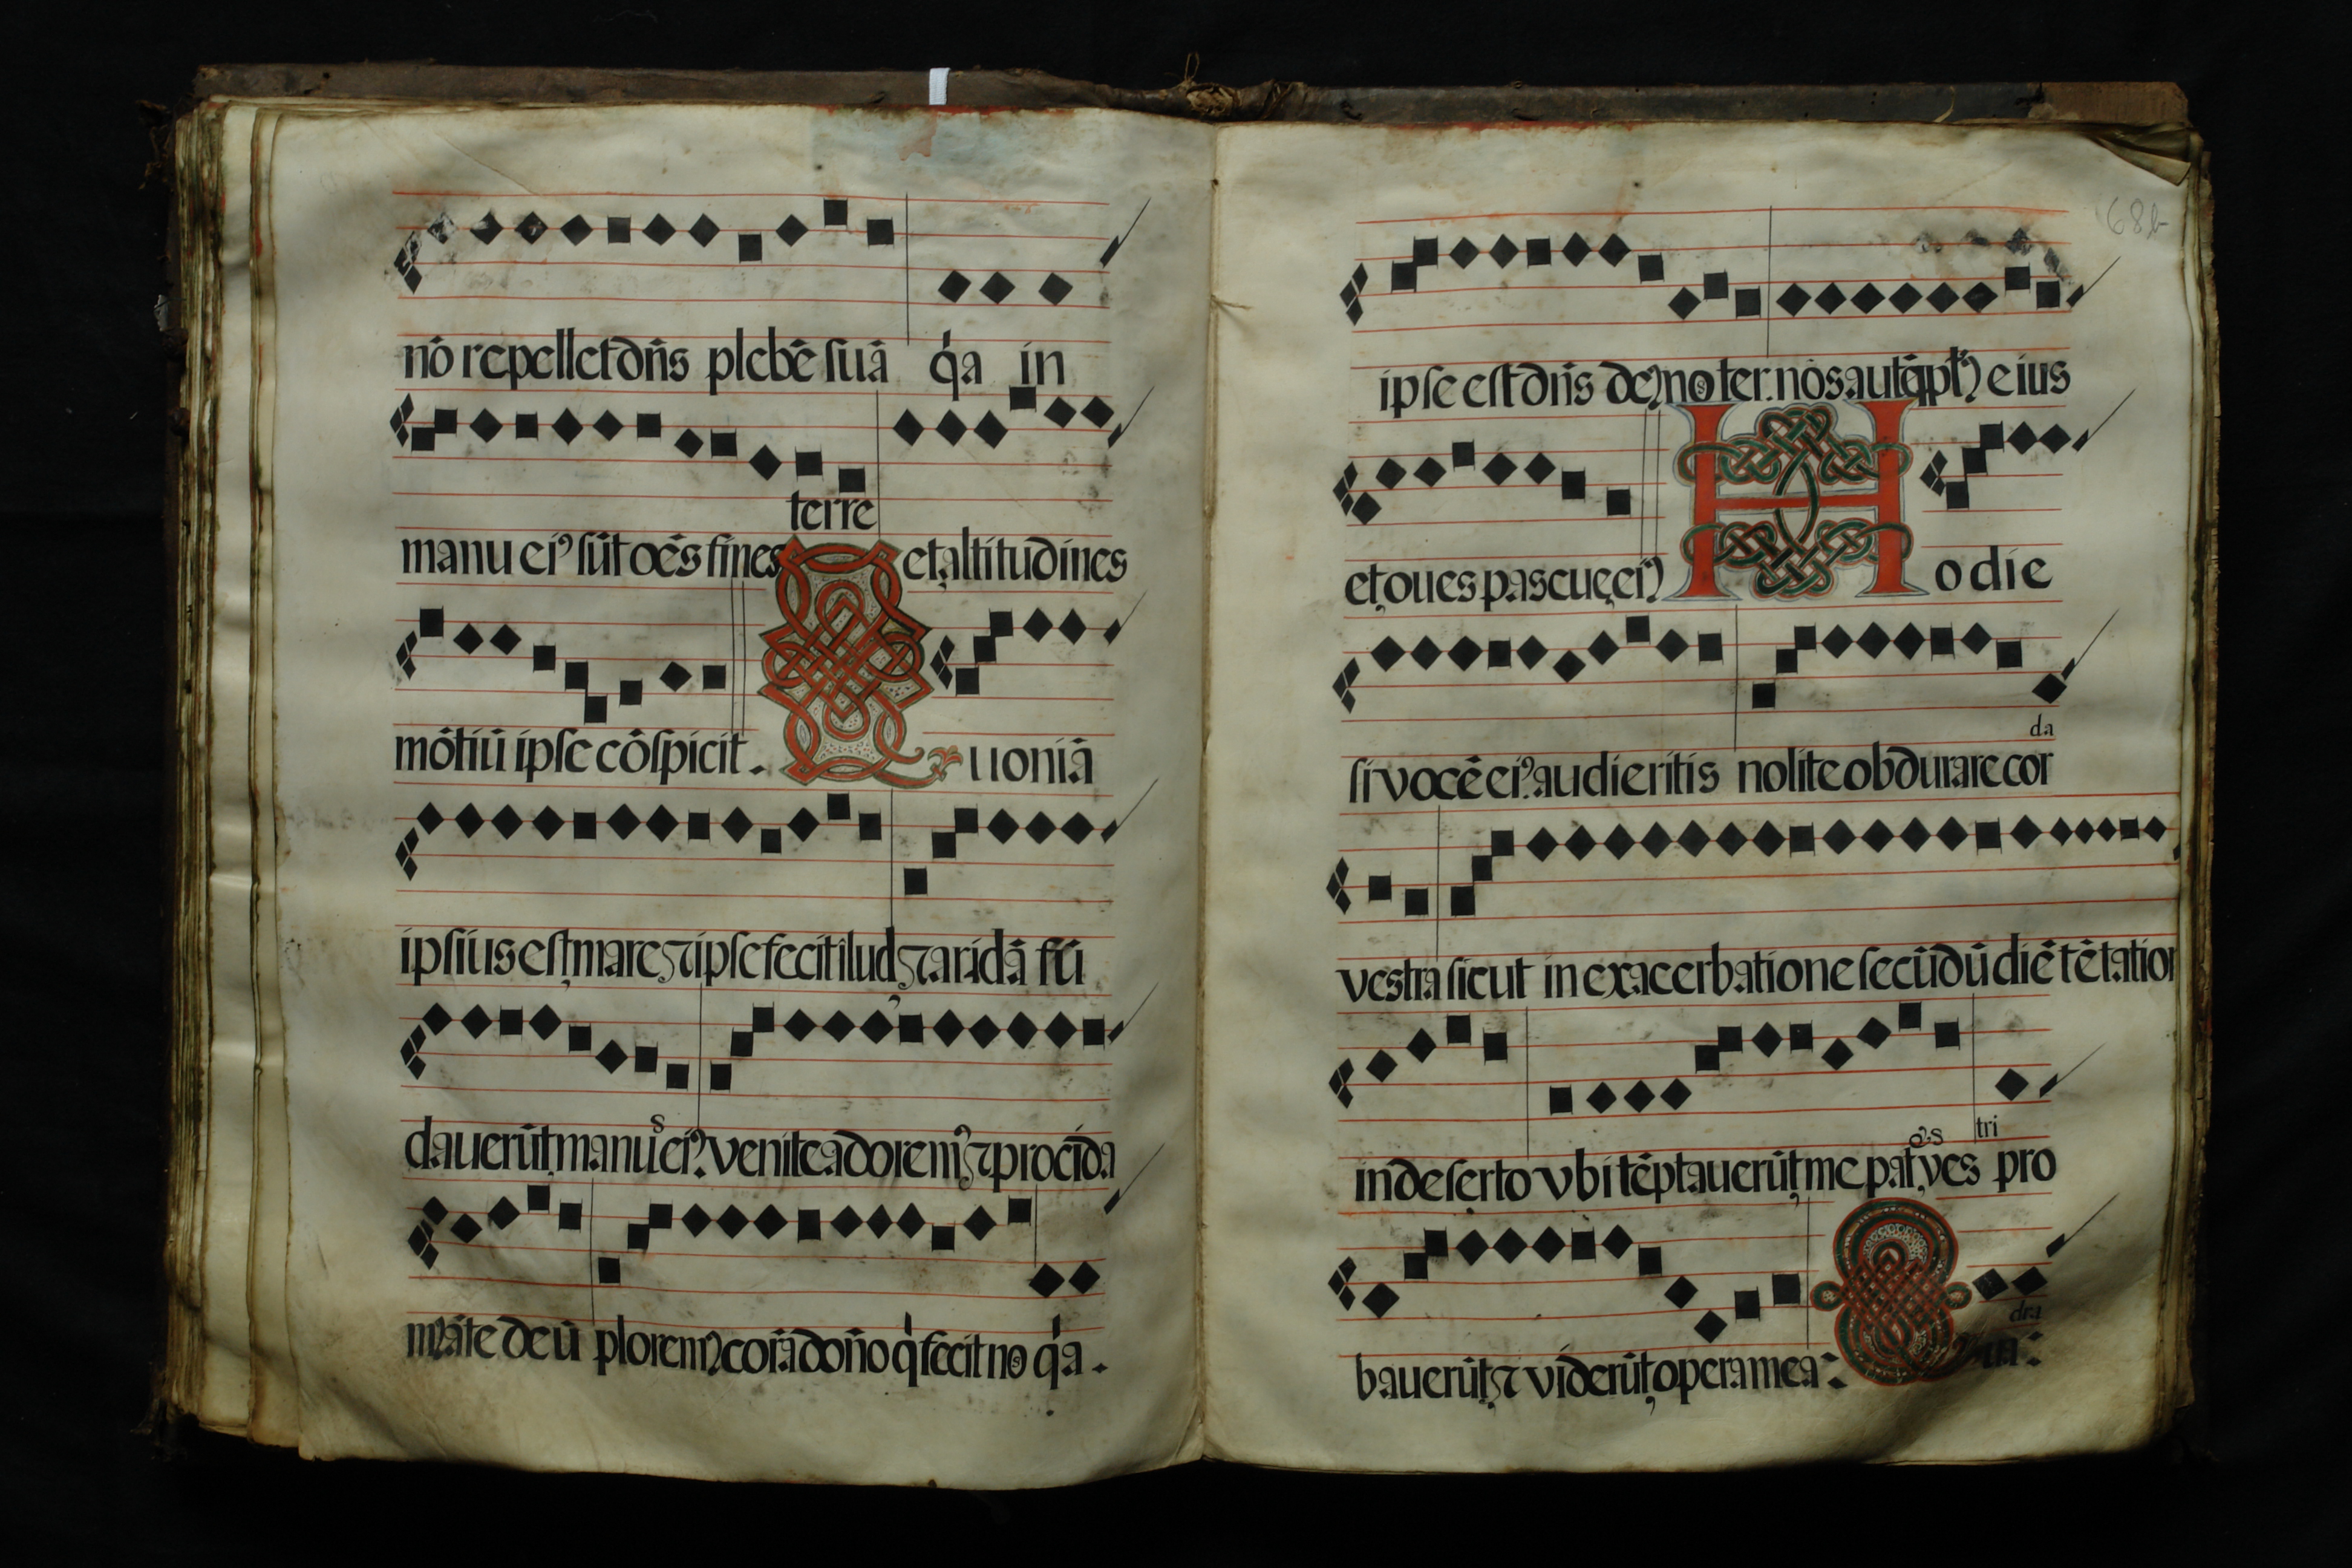 nō repellet dñs plebē suā qͥa in
terre
manu eiꝰ sūt oēs fines et altitudines
mōtiū ipse cōspicit. Quoniā
ipsius est mare ⁊ ipse fecit ilud ⁊ aridā fū
dauerūt manuˢ eiꝰ. venite adoremꝰ ⁊ procida
mꝰ āte deū ploremꝰ corā dom̄o qͥ fecit nos qͥa.
68b
ipse est dñs deꝰ noster. nos autē eius
et oues pascue eiꝰ Hodie
da
si vocē eiꝰ. audieritis nolite obdurare cor
vestra sicut in exacerbatione secūdū diē tētation
tri
in deserto vbi tēptauerūt me pro
dra
bauerūt ⁊ viderūt opera mea: